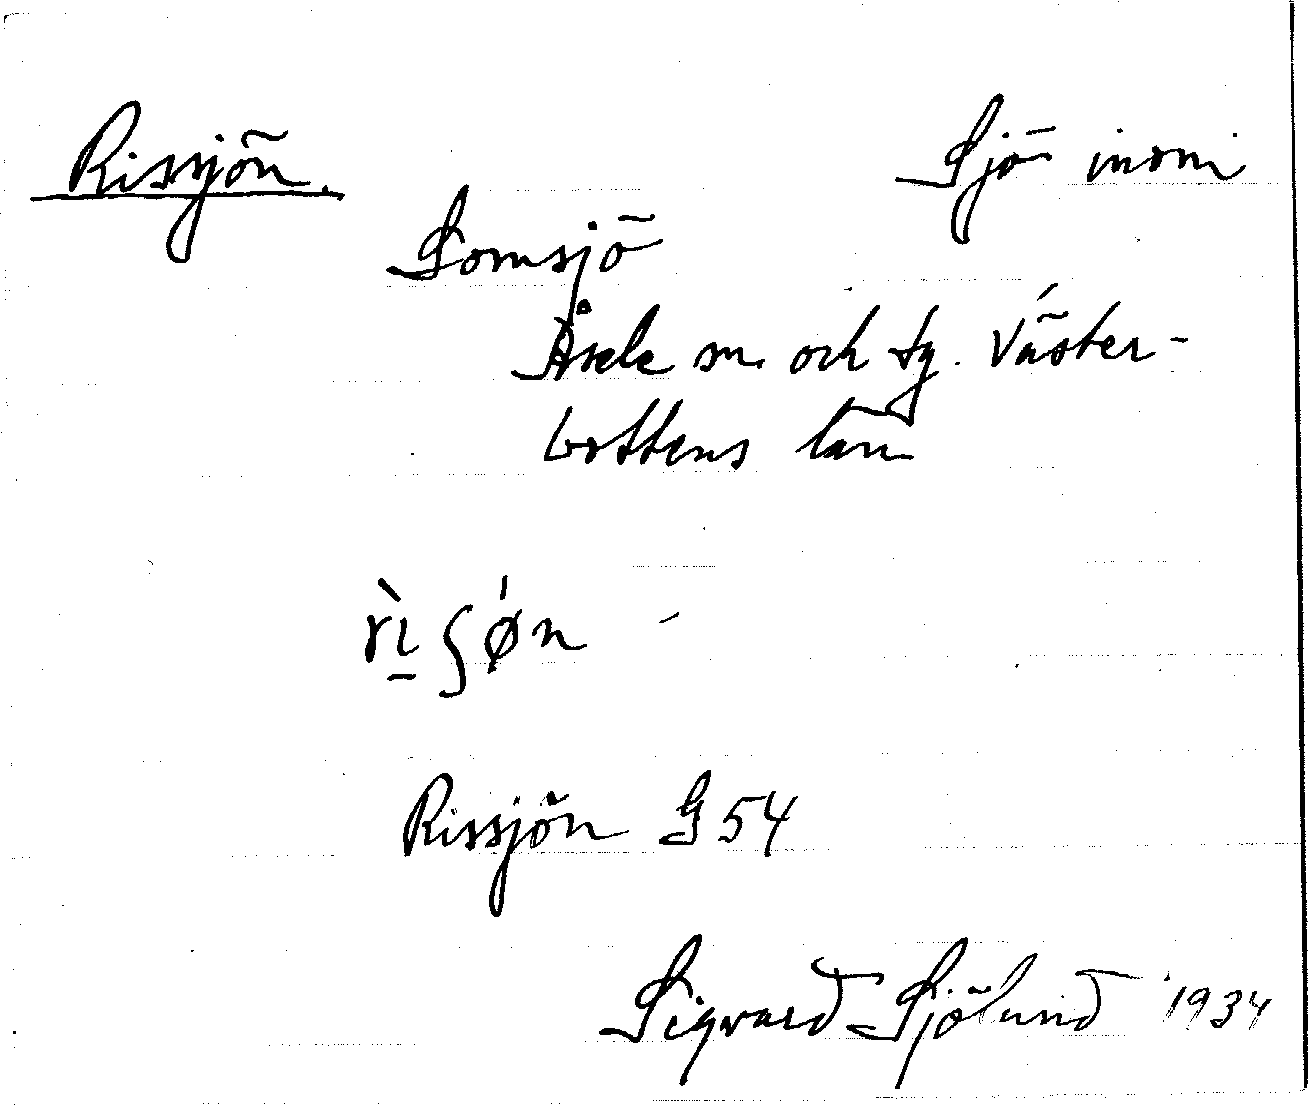 Rissjön. Sjö inom
Lomsjö
Åsele sn. och tg. Väster-
bottens län
rı̀ʃøn
Rissjön G 54
Sigvard Sjölund 1934